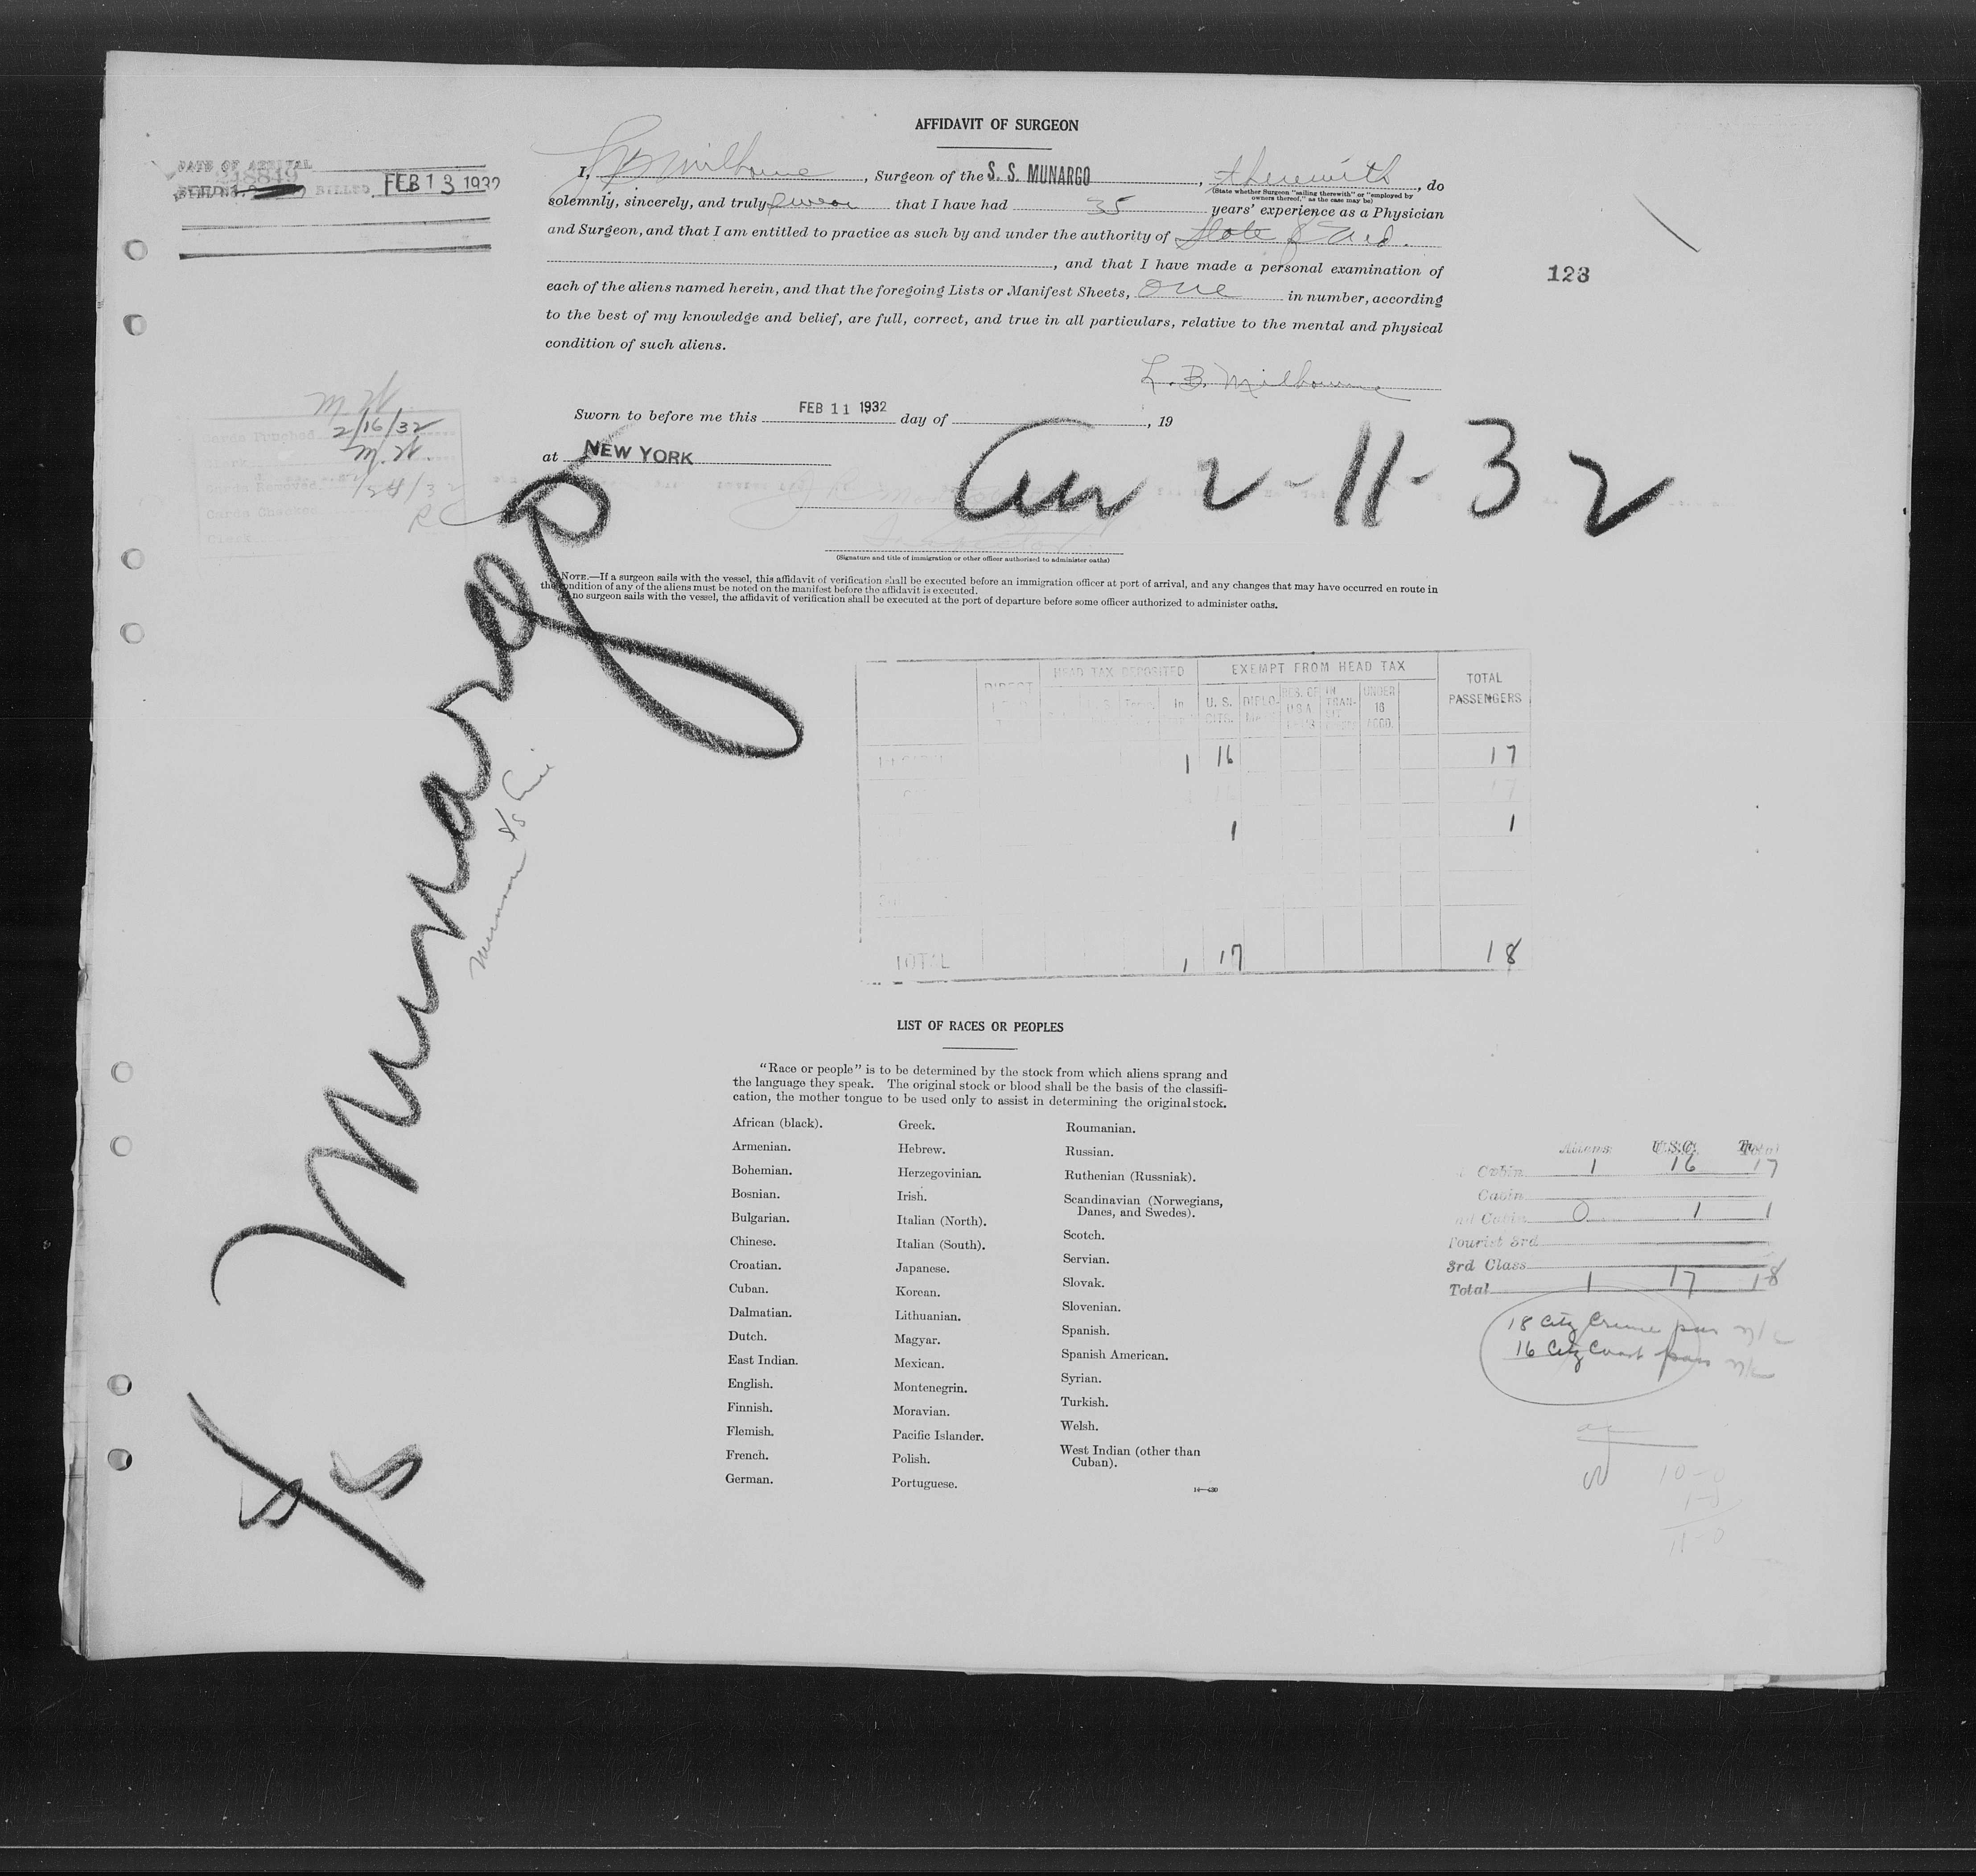 AFFIDAVIT OF SURGEON
DATE OF ARRIVAL
248849
BILLED FEB 13 1932
I, L B Milbourne, Surgeon of the S. S. MUNARGO, therewith, do
(State whether Surgeon "sailing therewith" or "employed by owners thereof," as the case may be)
solemnly, sincerely, and truly swear that I have had 35 years' experience as a Physician
and Surgeon, and that I am entitled to practice as such by and under the authority of State of Md.
, and that I have made a personal examination of
each of the aliens named herein, and that the foregoing Lists or Manifest Sheets, one in number, according
to the best of my knowledge and belief, are full, correct, and true in all particulars, relative to the mental and physical
condition of such aliens.
123
L. B. Milbourne
Sworn to before me this FEB 11 1932 day of , 19
at NEW YORK
Arr 2-11-32
M.W.
Cards Punched 2/16/32
M.W.
Cards Checked
Clerk
(Signature and title of immigration or other officer authorized to administer oaths)
NOTE.—If a surgeon sails with the vessel, this affidavit of verification shall be executed before an immigration officer at port of arrival, and any changes that may have occurred en route in
the condition of any of the aliens must be noted on the manifest before the affidavit is executed.
no surgeon sails with the vessel, the affidavit of verification shall be executed at the port of departure before some officer authorized to administer oaths.
S/S Munargo
Munson SS Line
DIRECT HEAD TAX DEPOSITED EXEMPT FROM HEAD TAX TOTAL PASSENGERS
In U. S. CITS. DIPLO- RES. OF U.S.A. IN TRAN- SIT UNDER 16 ACCD.
1 16 17
1 1
TOTAL 1 17 18
LIST OF RACES OR PEOPLES
"Race or people" is to be determined by the stock from which aliens sprang and
the language they speak. The original stock or blood shall be the basis of the classifi-
cation, the mother tongue to be used only to assist in determining the original stock.
African (black).
Armenian.
Bohemian.
Bosnian.
Bulgarian.
Chinese.
Croatian.
Cuban.
Dalmatian.
Dutch.
East Indian.
English.
Finnish.
Flemish.
French.
German.
Greek.
Hebrew.
Herzegovinian.
Irish.
Italian (North).
Italian (South).
Japanese.
Korean.
Lithuanian.
Magyar.
Mexican.
Montenegrin.
Moravian.
Pacific Islander.
Polish.
Portuguese.
Roumanian.
Russian.
Ruthenian (Russniak).
Scandinavian (Norwegians,
Danes, and Swedes).
Scotch.
Servian.
Slovak.
Slovenian.
Spanish.
Spanish American.
Syrian.
Turkish.
Welsh.
West Indian (other than
Cuban).
14—430
Aliens U.S.C. Total
Cabin 1 16 17
Cabin
Cabin 0 1 1
Tourist 3rd
3rd Class
Total 1 17 18
18 City Cruise pass
16 City Coast pass
10-0
1-0
11-0